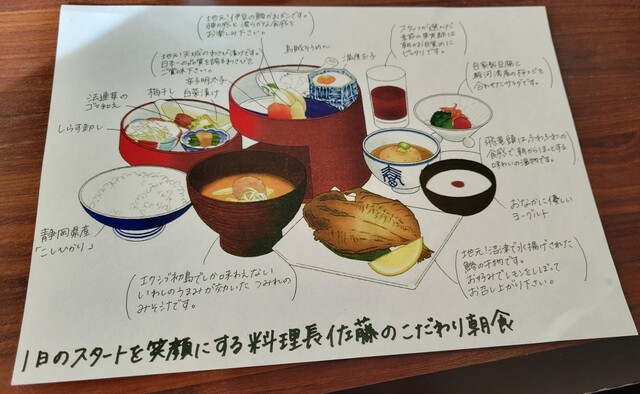 地元!伊豆の鯵がおすしです。
お楽しみ下さい。
スタッフが選んだ
季節の果実酢は
朝のお目覚めに
ピッタリです。
地元!天城のわさび漬けです。
日本一の品質を誇るわさびを
ご賞味下さい。
温泉玉子
自家製豆腐に
駿河湾産の桜えびを
合わせたサラダです。
辛子明太子
梅干し 白菜漬け
法蓮草の
ゴマ和え
しらす卸し
飛竜頭はふわふわの
食感で、朝からほっとする
味わいの温物です。
おなかに優しい
ヨーグルト
静岡県産
「こしひかり」
エクシブ初島でしか味わえない
いわしのうまみが効いたつみれの
みそ汁です。
地元!沼津で水揚げされた
鯵の干物です。
お好みでレモンをしぼって
お召し上がり下さい。
1日のスタートを笑顔にする料理長佐藤のこだわり朝食